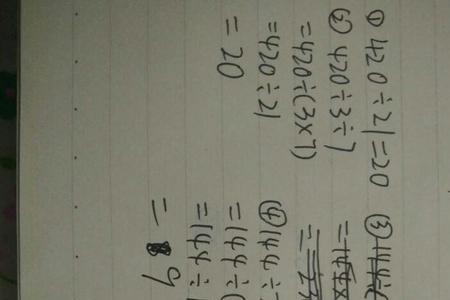 ① 420÷21=20
② 420÷3÷7
=420÷(3×7)
=420÷21
=20
③
④ 144÷
=144÷(
=144÷
=9